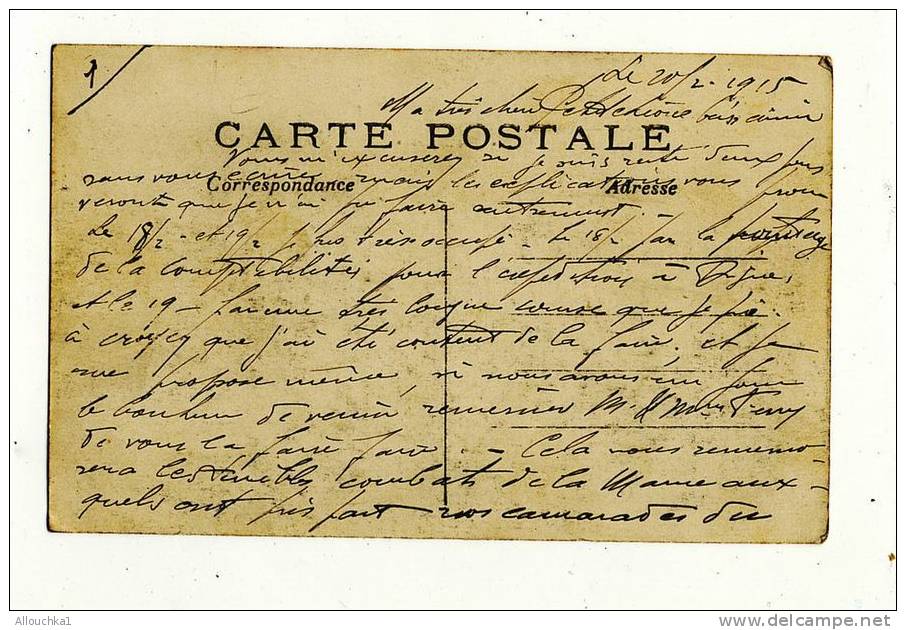 1
Le 20/2 - 1915
Ma très chère bien aimée
CARTE POSTALE
Vous m'excuserez si je suis resté deux jours
Correspondance
Adresse
sans vous écrire mais les explications vous prou
veront que je n'ai pu faire autrement. -
Le 18/2 - et 19/2 très occupé - Le 18/2 par le pointage
de la comptabilité pour l'expédition à Digne,
et le 19 - par une très longue course que je fis.
à croire que j'ai été content de la faire, et je
me propose même, si nous avons un jour
le bonheur de venir remercier M. & Mme
de vous la faire faire. - Cela vous remémo-
rera les terribles combats de la Marne aux-
quels ont pris part nos camarades du
Allouchka1
www.delcampe.net